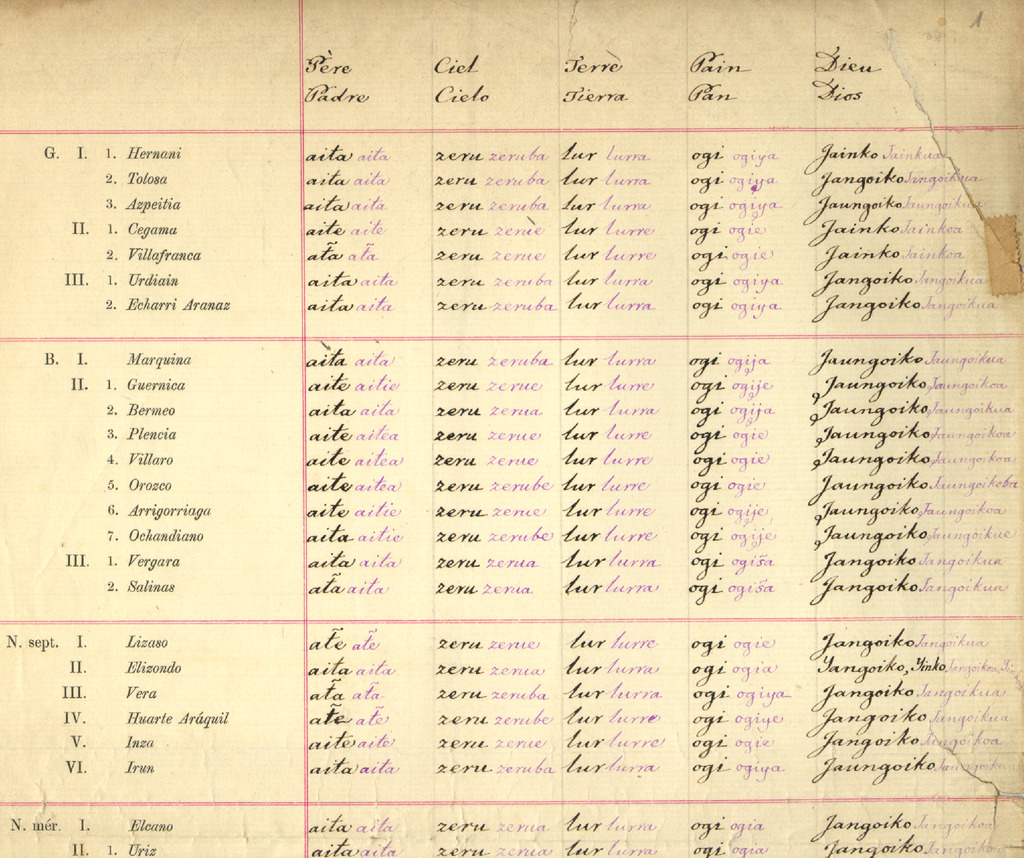 1
Père Ciel Terrè Pain Dieu
Padre Cielo Tierra Pan Dios
G. I. 1. Hernani aita aita zeru zeruba lur lurra ogi ogiya Jainko Jainkua
2. Tolosa aita aita zeru zeruba lur lurra ogi ogiya Jangoiko Jangoikua
3. Azpeitia aita aita zeru zeruba lur lurra ogi ogiya Jaungoiko Jaungoikua
II. 1. Cegama aite aite zeru zerue lur lurre ogi ogie Jainko Jainkoa
2. Villafranca at̃a at̃a zeru zerue lur lurre ogi ogie Jainko Jainkoa
III. 1. Urdiain aita aita zeru zeruba lur lurra ogi ogiya Jangoiko Jangoikua
2. Echarri Aranaz aita aita zeru zeruba lur lurra ogi ogiya Jangoiko Jangoikua
B. I. Marquina aita aita zeru zeruba lur lurra ogi ogija Jaungoiko Jaungoikua
II. 1. Guernica aite aitie zeru zerue lur lurre ogi ogije Jaungoiko Jaungoikoa
2. Bermeo aita aita zeru zerua lur lurra ogi ogija Jaungoiko Jaungoikua
3. Plencia aite aitea zeru zerue lur lurre ogi ogie Jaungoiko Jaungoikoa
4. Villaro aite aitea zeru zerue lur lurre ogi ogie Jaungoiko Jaungoikoa
5. Orozco aite aitea zeru zerube lur lurre ogi ogie Jaungoiko Jaungoikoba
6. Arrigorriaga aite aitie zeru zerue lur lurre ogi ogije Jaungoiko Jaungoikoa
7. Ochandiano aita aitie zeru zerube lur lurre ogi ogije Jaungoiko Jaungoikue
III. 1. Vergara aita aita zeru zerua lur lurra ogi ogis̃a Jangoiko Jangoikua
2. Salinas at̃a aita zeru zerua lur lurra ogi ogis̃a Jangoiko Jangoikua
N. sept. I. Lizaso at̃e at̃e zeru zerue lur lurre ogi ogie Jangoiko Jangoikua
II. Elizondo aita aita zeru zerua lur lurra ogi ogia Yangoiko, Yinko Jangoikoa,
III. Vera at̃a at̃a zeru zeruba lur lurra ogi ogiya Jangoiko Jangoikua
IV. Huarte Aráquil at̃e at̃e zeru zerube lur lurre ogi ogiye Jangoiko Jangoikua
V. Inza aite aite zeru zerue lur lurre ogi ogie Jangoiko Jangoikoa
VI. Irun aita aita zeru zeruba lur lurra ogi ogiya Jaungoiko Jaungoikua
N. mér. I. Elcano aita aita zeru zerua lur lurra ogi ogia Jangoiko Jangoikoa
II. 1. Uriz aita aita zeru zerua lur lurra ogi ogia Jangoiko Jangoikoa